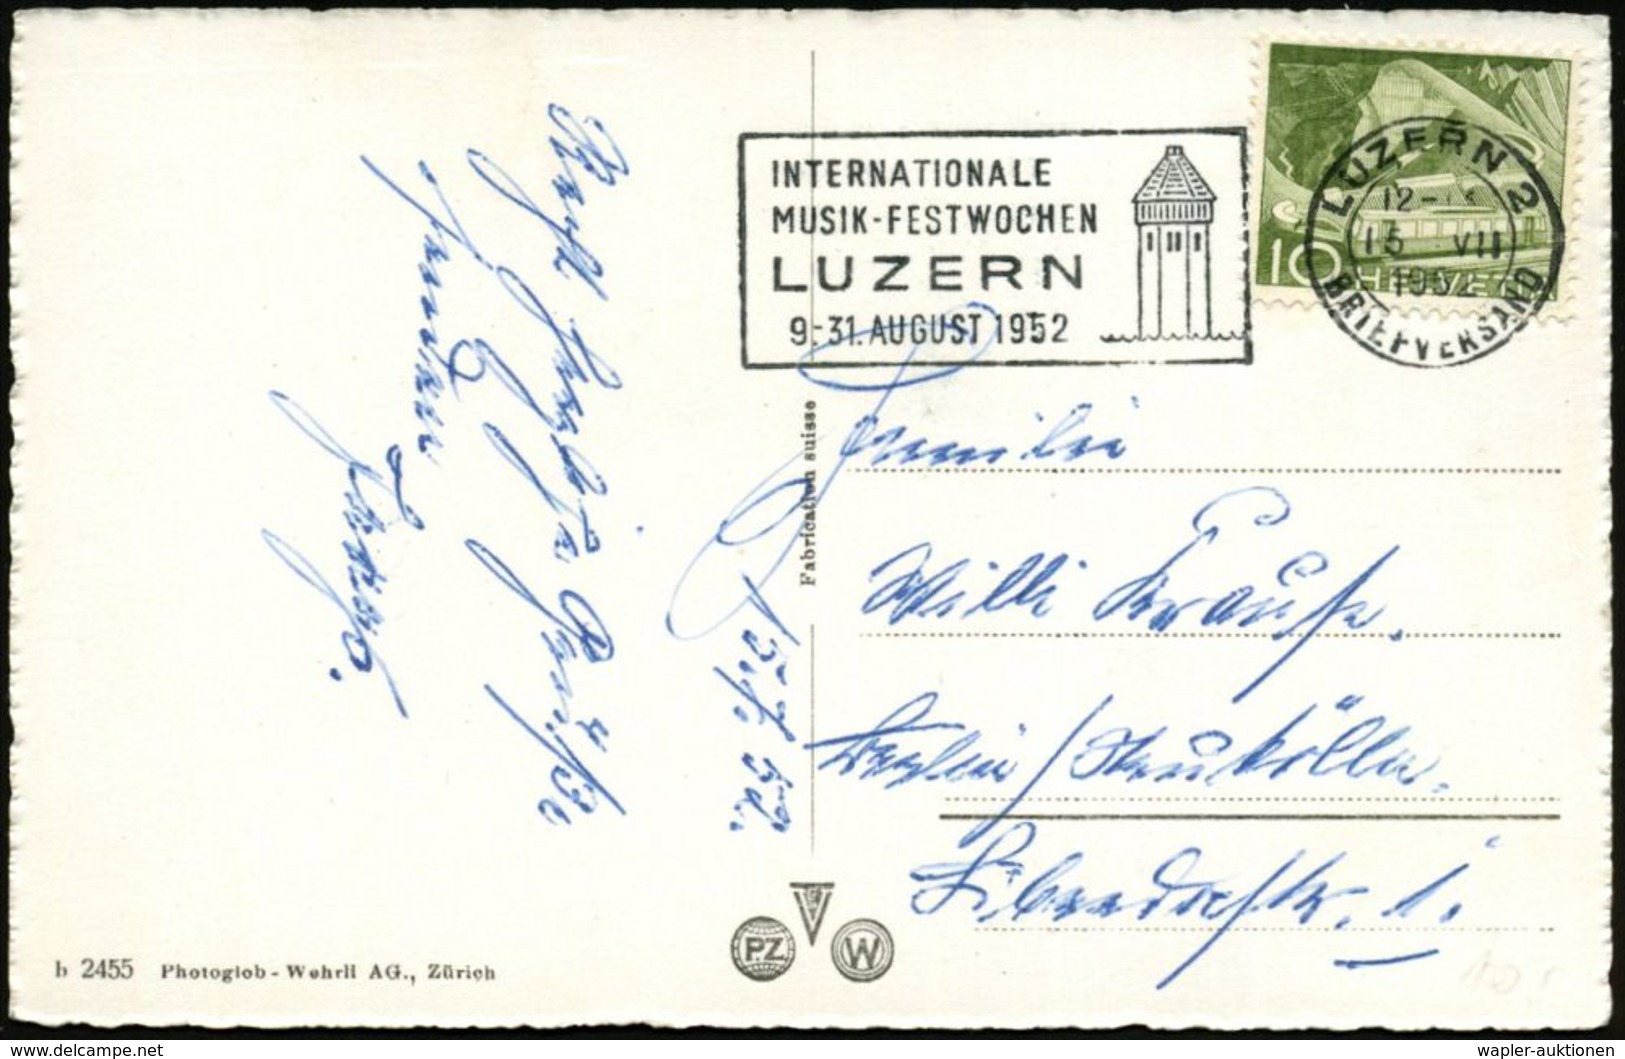 INTERNATIONALE
MUSIK-FESTWOCHEN
LUZERN
9.-31. AUGUST 1952
LUZERN 2
12-
15 VII
1952
BRIEFVERSAND
10 HELVETIA
Recht herzliche Grüße
Familie
Willi Krause.
Berlin/Neukölln.
1.
15.7.52.
Fabrication suisse
P.Z.
W
b 2455 Photoglob-Wehrli AG., Zürich
delcampe.net
wapler-auktionen